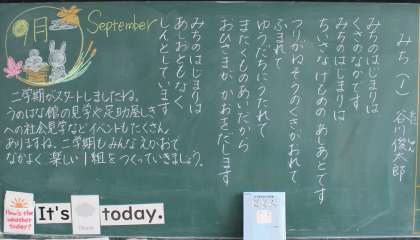 みち(1) 谷川俊太郎
みちのはじまりは
くさのなかです
みちのはじまりは
ちいさなけものの あしあとです
つりがねそうのくきがおれて
ふまれて
ゆうだちにうたれて
またくものあいだから
おひさまが かおをだします
みちのはじまりは
あしおともなく
しんとしています
9月
September
二学期がスタートしましたね。
うのはな館の見学や足助屋しき
への社会見学などイベントもたくさん
ありますね。二学期も みんなえがおで
なかよく 楽しい1組をつくっていきましょう。
How's the
weather
today?
It's
today.